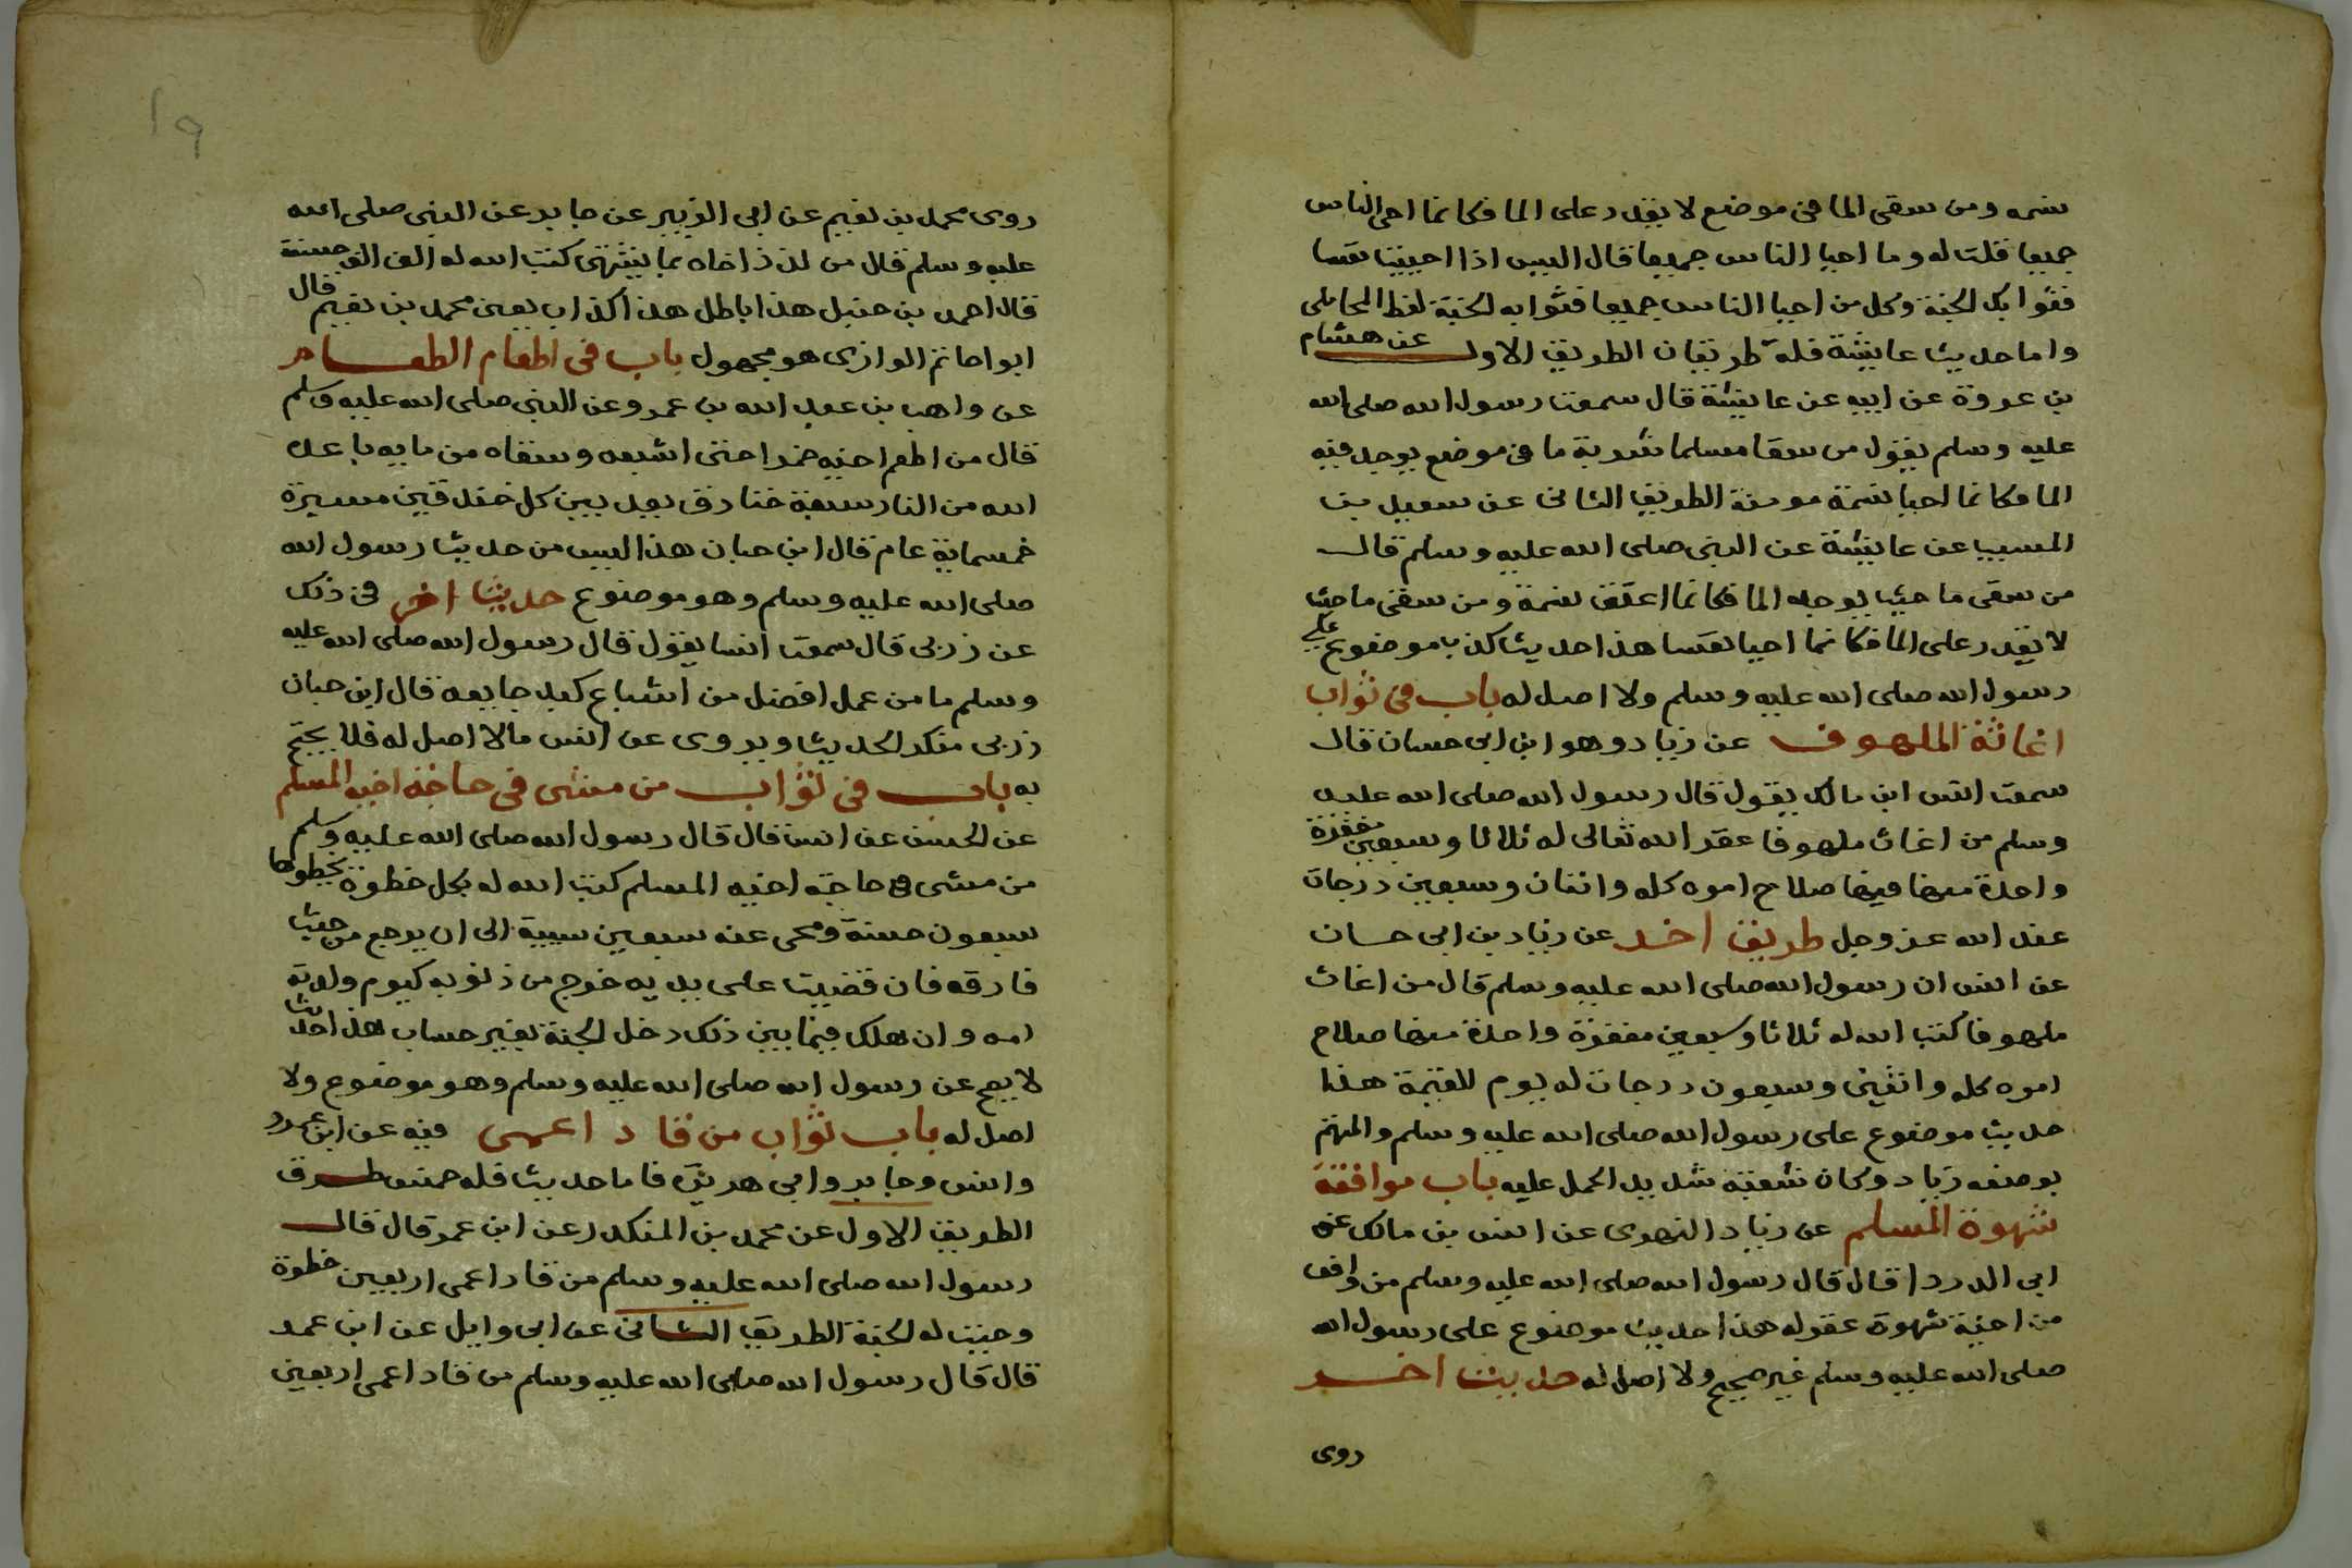 نسمه ومن سقى الما فى موضع لا يقدر على الما فكانما احى الناس
جميعا قلت له وما احيا الناس جميعا قال اليس اذا احييت نفسا
فثوابك الجنة وكل من احيا الناس جميعا فثوابه الجنة لفظ المحاملى
واما حديث عايشة فله طريقان الطريق الاول عن هشام
بن عروة عن ابيه عن عايشة قال سمعت رسول الله صلى الله
عليه وسلم يقول من سقا مسلما شربة ما فى موضع يوجد فيه
الما فكانما احيا نسمة مومنة الطريق الثانى عن سعيد بن
المسيب عن عايشة عن النبى صلى الله عليه وسلم قال
من سقى ما حيث يوجد الما فكانما اعتق نسمة ومن سقى ما حيث
لا يقدر على الما فكانما احيا نفسا هذا حديث كذب موضوع على
رسول الله صلى الله عليه وسلم ولا اصل له باب فى ثواب
اغاثة الملهوف عن زياد وهو ابن ابى حسان قال
سمعت انس ابن مالك يقول قال رسول الله صلى الله عليه
وسلم من اغاث ملهوفا غفر الله تعالى له ثلاثا وسبعين مغفرة
واحدة منها فيها صلاح اموه كله واثنان وسبعين درجات
عند الله عز وجل طريق اخر عن زياد بن ابى حسان
عن انس ان رسول الله صلى الله عليه وسلم قال من اغاث
ملهوفا كتب الله له ثلاثا وسبعين مغفرة واحدة منها صلاح
اموه كله واثنين وسبعون درجات له يوم القيمة هذا
حديث موضوع على رسول الله صلى الله عليه وسلم والمتهم
بوضعه زياد وكان شعبة شديد الحمل عليه باب موافقة
شهوة المسلم عن زياد النهدى عن انس بن مالك عن
ابى الدردا قال قال رسول الله صلى الله عليه وسلم من وافق
من اخيه شهوة غفر له هذا حديث موضوع على رسول الله
صلى الله عليه وسلم غير صحيح ولا اصل له حديث اخر
روى
١٩
روى محمد بن نعيم عن ابى الزبير عن جابر عن النبى صلى الله
عليه وسلم قال من لذذ اخاه بما يشتهى كتب الله له الف الف حسنة
قال احمد بن حنبل هذا باطل هذا كذاب يعنى محمد بن نعيم قال
ابو حاتم الرازى هو مجهول باب فى اطعام الطعام
عن واهب بن عبد الله بن عمرو عن النبى صلى الله عليه وسلم
قال من اطعم اخيه خبزا حتى اشبعه وسقاه من مايه باعده
الله من النار سبعة خنادق بعد بين كل خندقين مسيرة
خمسماية عام قال ابن حبان هذا ليس من حديث رسول الله
صلى الله عليه وسلم وهو موضوع حديث اخر فى ذلك
عن زربى قال سمعت انسا يقول قال رسول الله صلى الله عليه
وسلم ما من عمل افضل من اشباع كبد جايعة قال ابن حبان
زربى منكر الحديث ويروى عن انس مالا اصل له فلا يحتج
به باب فى ثواب من مشى فى حاجة اخيه المسلم
عن الحسن عن انس قال قال رسول الله صلى الله عليه وسلم
من مشى فى حاجة اخيه المسلم كتب الله له بكل خطوة يخطوها
سبعون حسنة ومحى عنه سبعين سيية الى ان يرجع من حيث
فارقه فان قضيت على يديه خرج من ذنوبه كيوم ولدته
امه وان هلك فيما بين ذلك دخل الجنة بغير حساب هذا حديث
لا يصح عن رسول الله صلى الله عليه وسلم وهو موضوع ولا
اصل له باب ثواب من قاد اعمى فيه عن ابن عمر
وانس وجابر وابى هريرة فاما حديث فله خمس طرق
الطريق الاول عن محمد بن المنكدر عن ابن عمر قال قال
رسول الله صلى الله عليه وسلم من قاد اعمى اربعين خطوة
وجبت له الجنة الطريق الثانى عن ابى وايل عن ابن عمر
قال قال رسول الله صلى الله عليه وسلم من قاد اعمى اربعين